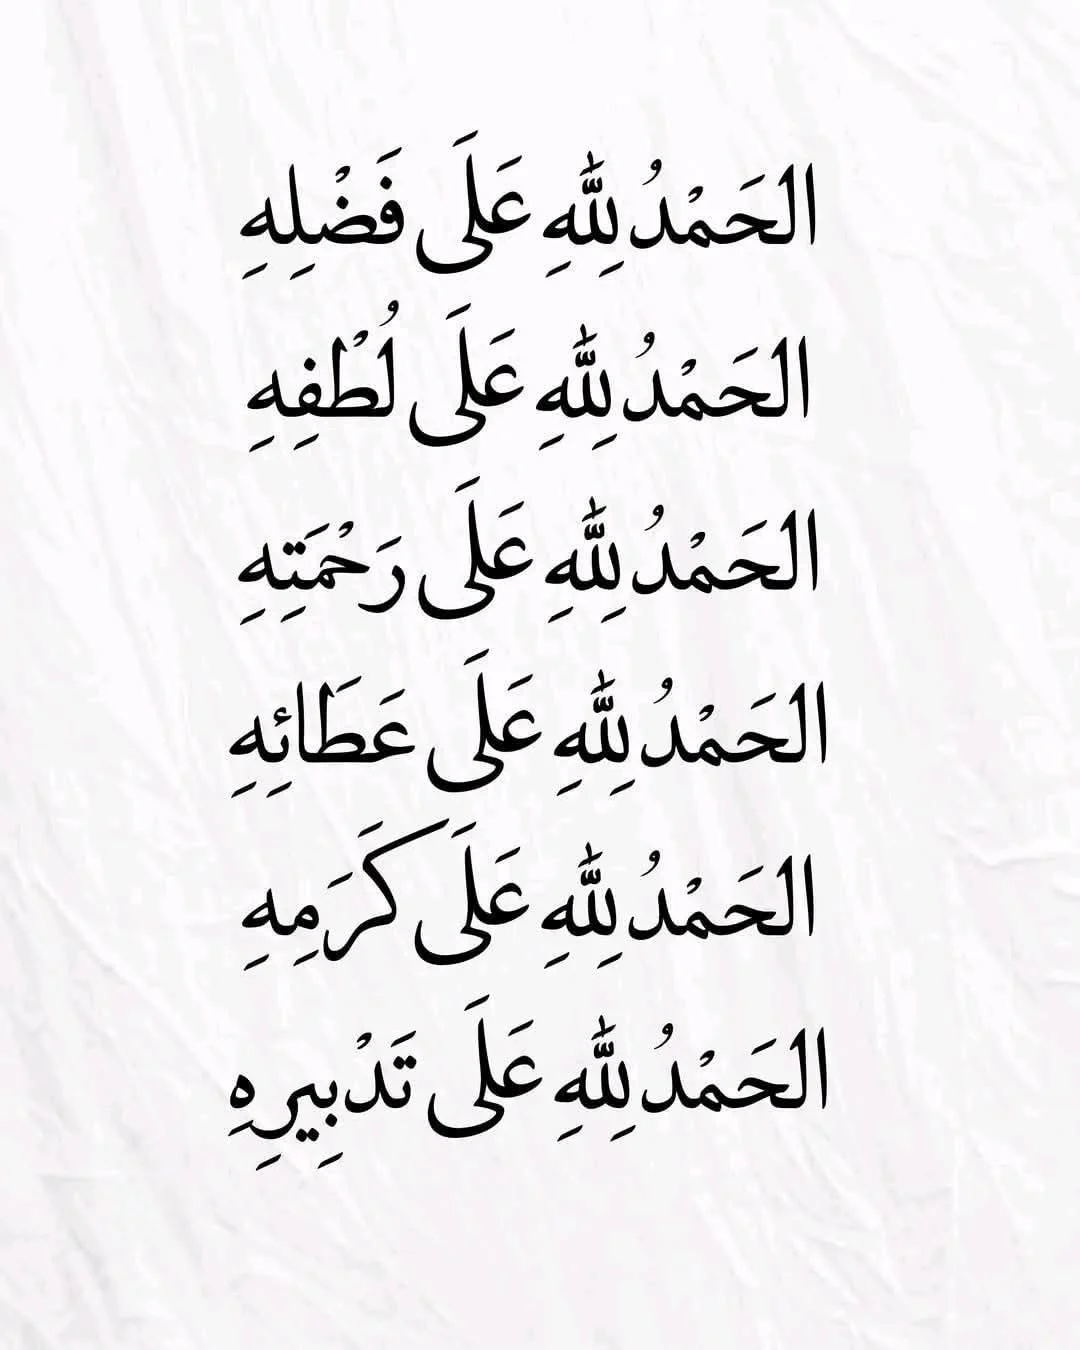 الحَمْدُ لِلّٰهِ عَلَى فَضْلِهِ
الحَمْدُ لِلّٰهِ عَلَى لُطْفِهِ
الحَمْدُ لِلّٰهِ عَلَى رَحْمَتِهِ
الحَمْدُ لِلّٰهِ عَلَى عَطَائِهِ
الحَمْدُ لِلّٰهِ عَلَى كَرَمِهِ
الحَمْدُ لِلّٰهِ عَلَى تَدْبِيرِهِ